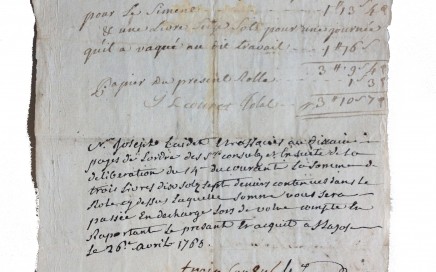 pour le 1# 13 s 4 d
& une Livre seize sols pour une journée
qu'il a vaqué au dit travail 1# 16 s
3# 9 s 4 d
Papier du présent Rolle 1 s 3 d
total 3# 10 s 7 d
Joseph
payés de l'ordre des Srs consuls, Ensuite de la
deliberation du 14e du courant la Somme de
trois Livres dix sols sept deniers contenües dans le
Rolle cy dessus Laquelle somme vous sera
passée En decharge Lors de votre compte En
Raportant le présant acquit A
le 26e avril 1765